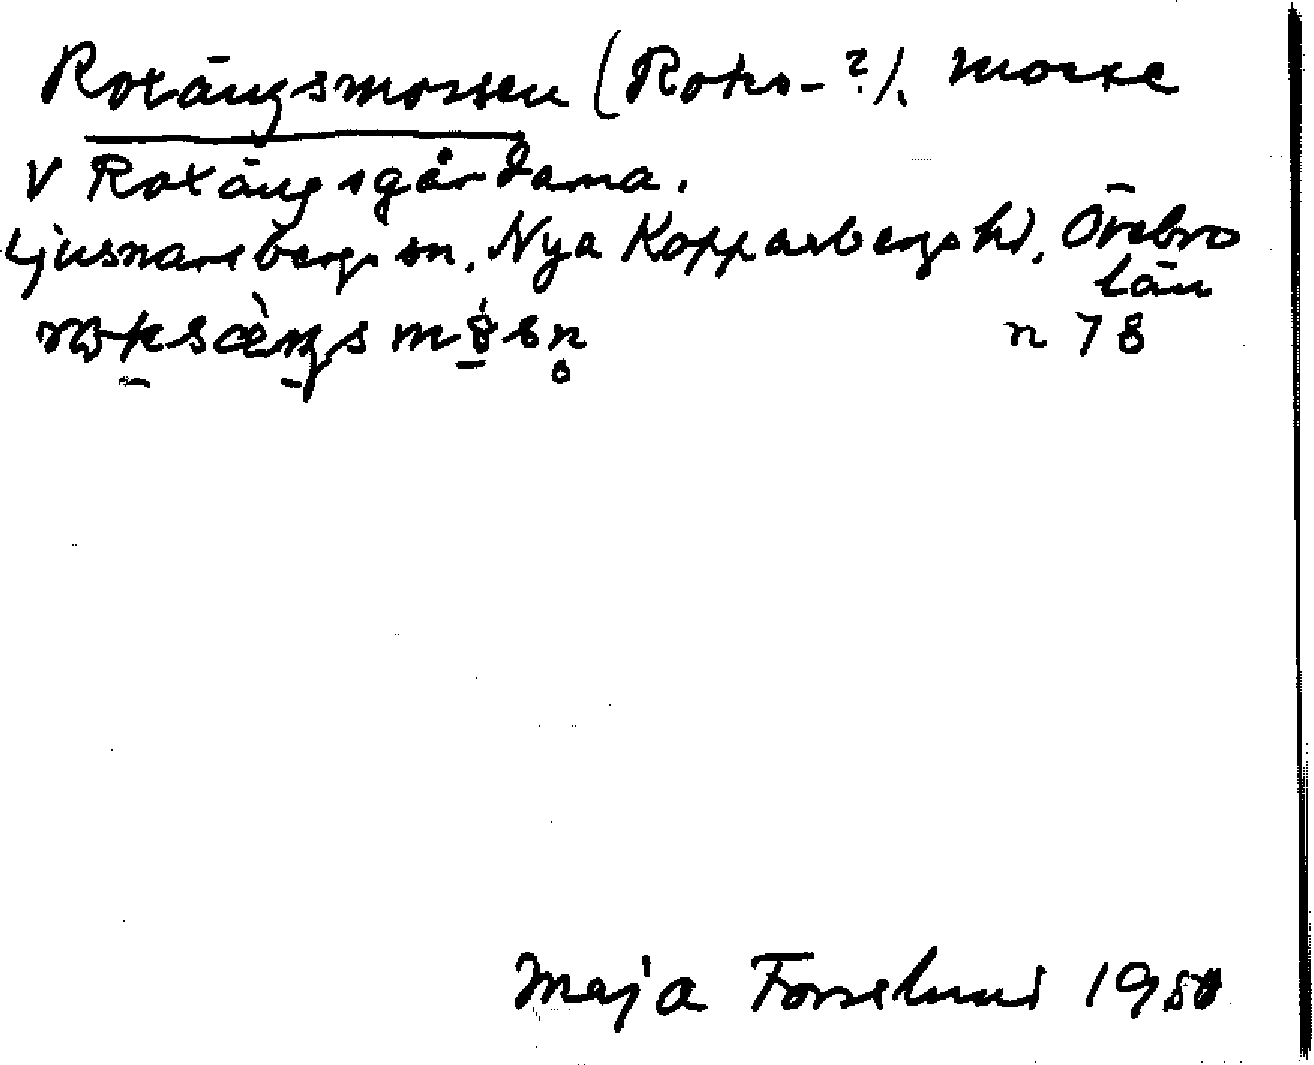 Roxängsmossen (Roks-?), mosse
V Roxängsgårdarna.
Ljusnarsbergs sn, Nya Kopparbergs hd, Örebro
län
n 78
Maja Forsslund 1950